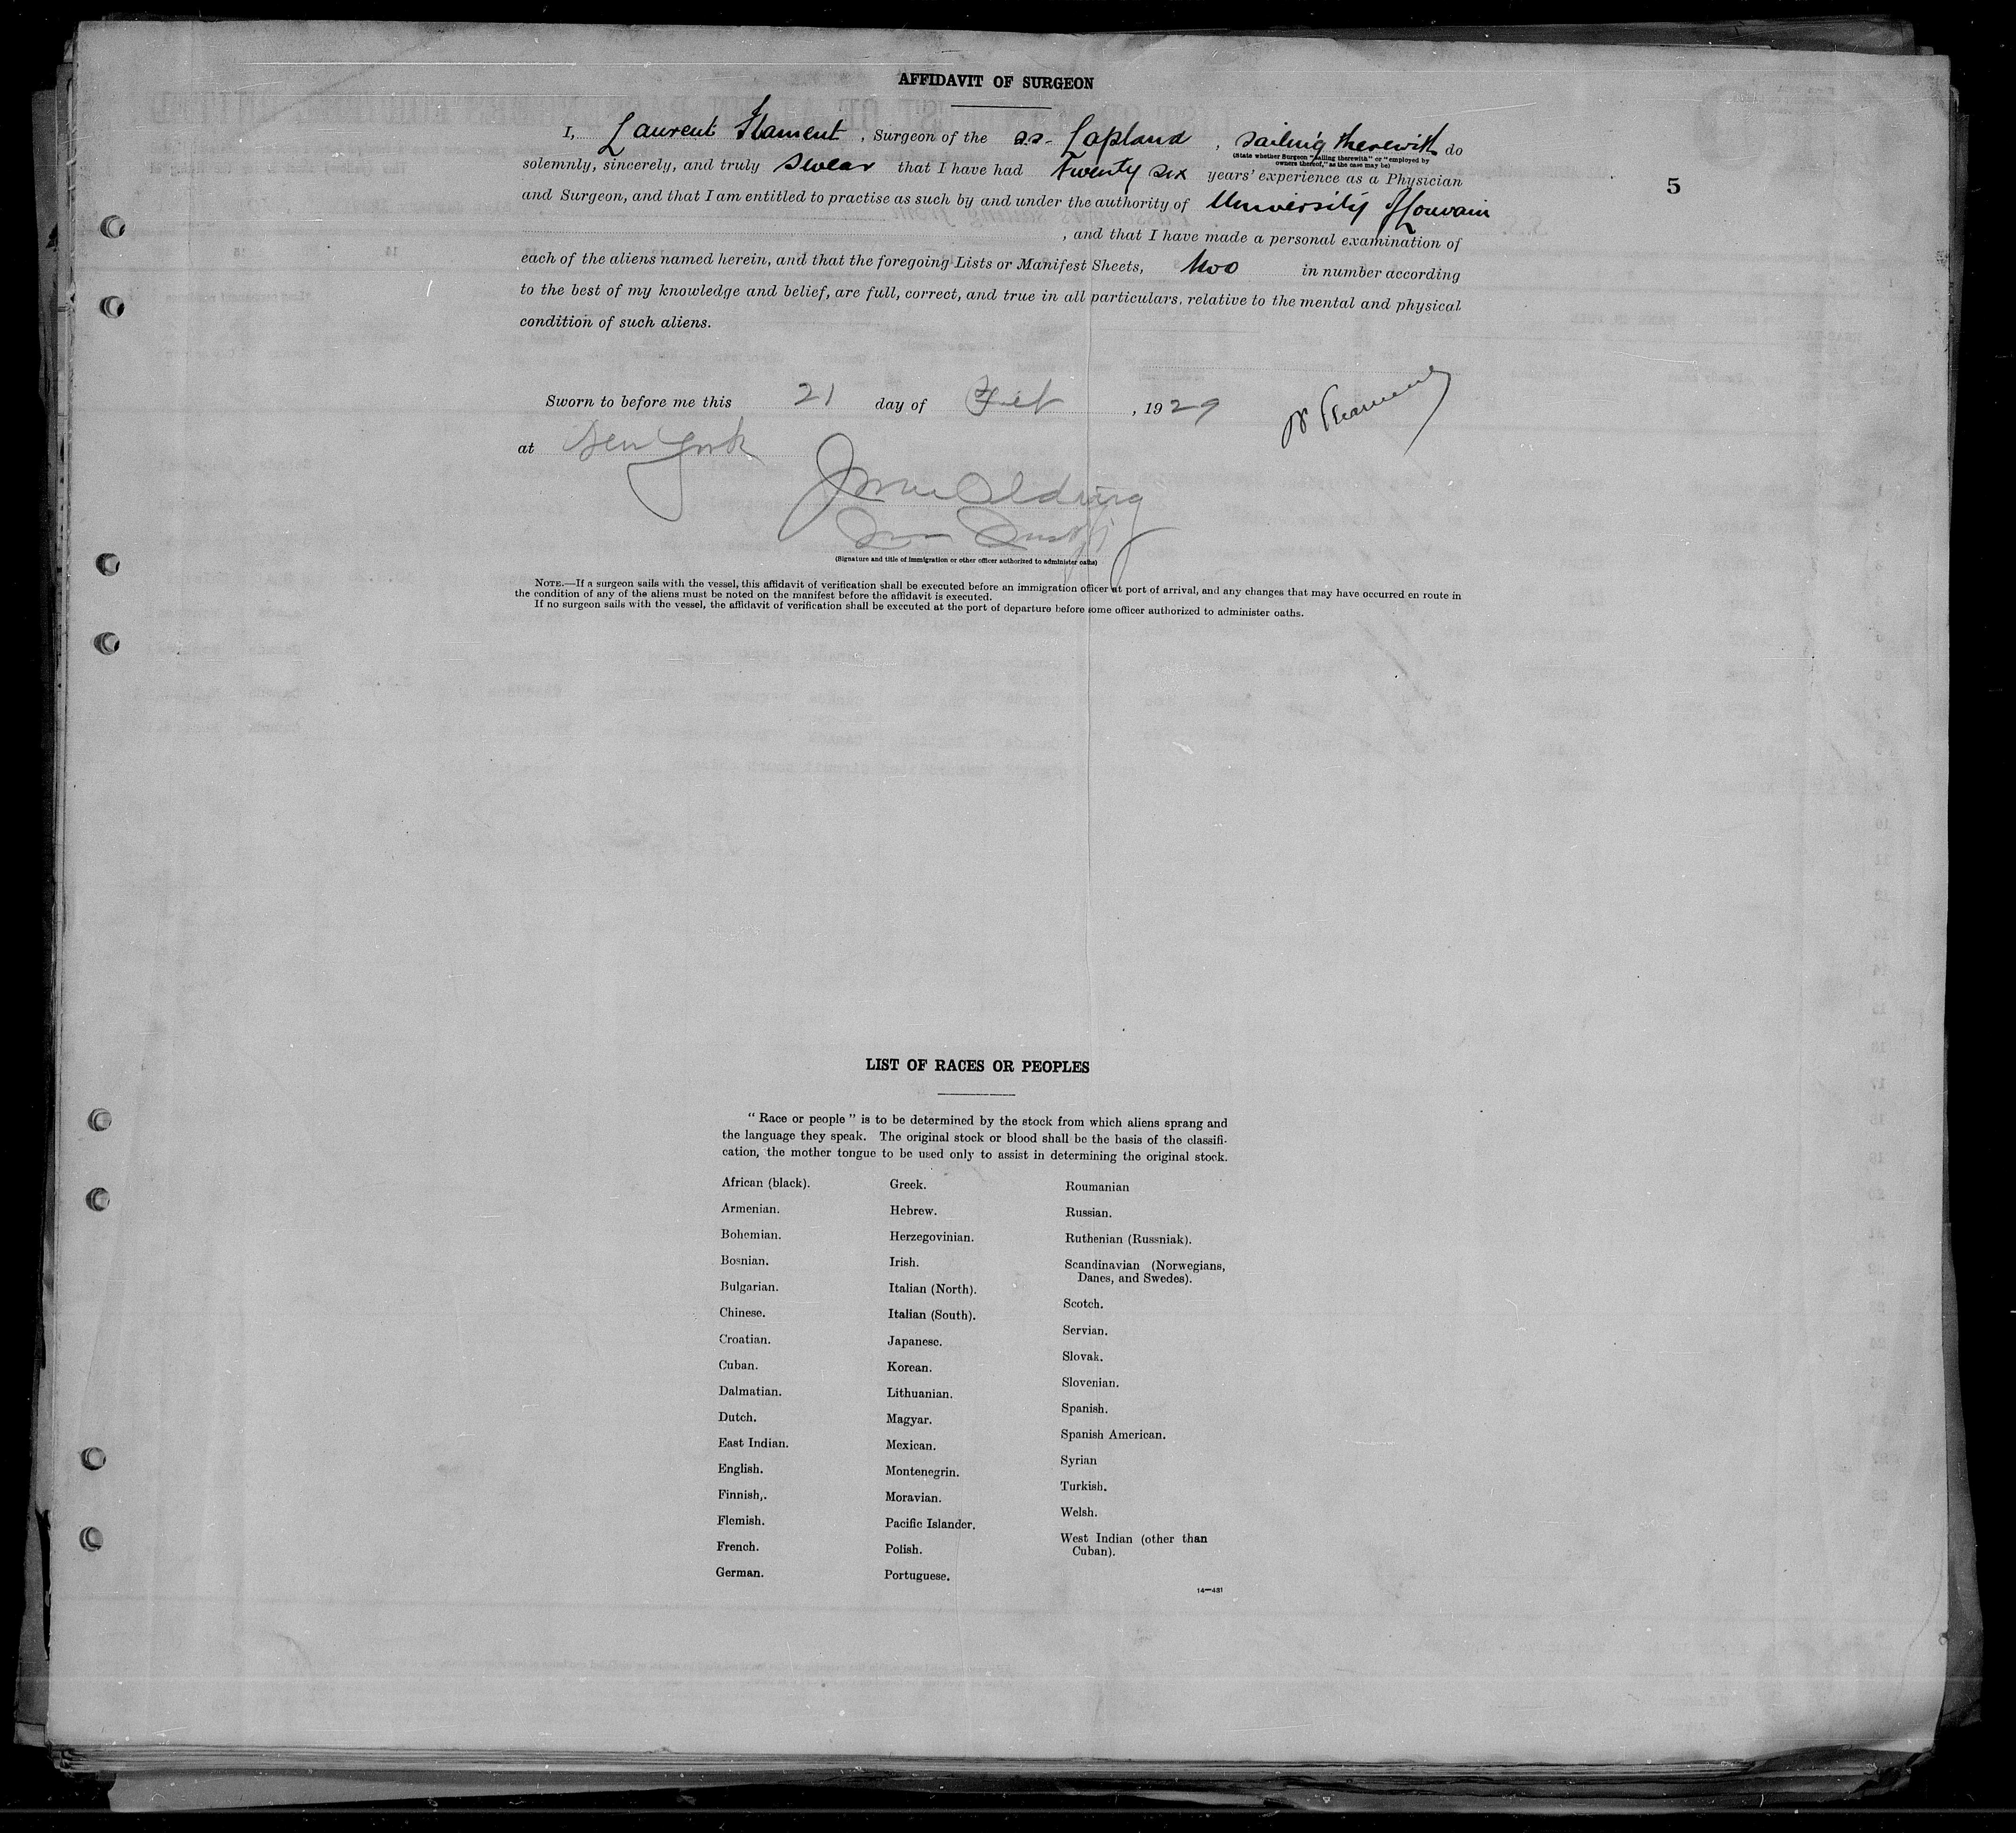 AFFIDAVIT OF SURGEON
I, Laurent Flament, Surgeon of the s.s. Lapland, sailing therewith do
(State whether Surgeon "sailing therewith" or "employed by
owners thereof," as the case may be)
solemnly, sincerely, and truly swear that I have had Twenty six years' experience as a Physician
5
and Surgeon, and that I am entitled to practise as such by and under the authority of University of Louvain
, and that I have made a personal examination of
each of the aliens named herein, and that the foregoing Lists or Manifest Sheets, two in number according
to the best of my knowledge and belief, are full, correct, and true in all particulars, relative to the mental and physical
condition of such aliens.
Sworn to before me this 21 day of Feb, 1929
at New York
(Signature and title of immigration or other officer authorized to administer oaths)
NOTE.—If a surgeon sails with the vessel, this affidavit of verification shall be executed before an immigration officer at port of arrival, and any changes that may have occurred en route in
the condition of any of the aliens must be noted on the manifest before the affidavit is executed.
If no surgeon sails with the vessel, the affidavit of verification shall be executed at the port of departure before some officer authorized to administer oaths.
LIST OF RACES OR PEOPLES
"Race or people" is to be determined by the stock from which aliens sprang and
the language they speak. The original stock or blood shall be the basis of the classifi-
cation, the mother tongue to be used only to assist in determining the original stock.
African (black).
Armenian.
Bohemian.
Bosnian.
Bulgarian.
Chinese.
Croatian.
Cuban.
Dalmatian.
Dutch.
East Indian.
English.
Finnish,.
Flemish.
French.
German.
Greek.
Hebrew.
Herzegovinian.
Irish.
Italian (North).
Italian (South).
Japanese.
Korean.
Lithuanian.
Magyar.
Mexican.
Montenegrin.
Moravian.
Pacific Islander.
Polish.
Portuguese.
Roumanian
Russian.
Ruthenian (Russniak).
Scandinavian (Norwegians,
Danes, and Swedes).
Scotch.
Servian.
Slovak.
Slovenian.
Spanish.
Spanish American.
Syrian
Turkish.
Welsh.
West Indian (other than
Cuban).
14—431